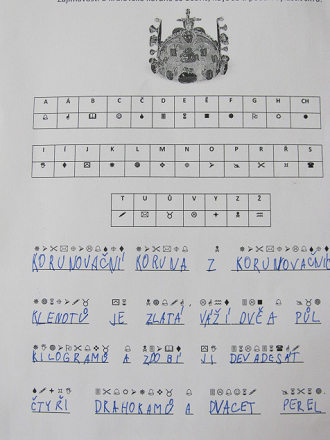 A Á B C Č D E Ě F G H CH
I Í J K L M N O P R Ř S
T U Ů V Y Z Ž
KORUNOVAČNÍ KORUNA Z KORUNOVAČNÍCH
KLENOTŮ JE ZLATÁ VÁŽÍ DVĚ A PŮL
KILOGRAMŮ A ZDOBÍ JI DEVADESÁT
ČTYŘI DRAHOKAMŮ A DVACET PEREL